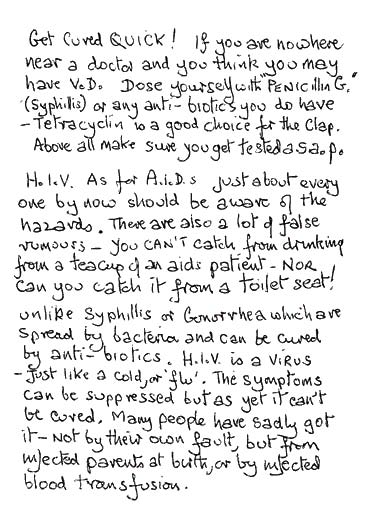 Get Cured QUICK! If you are nowhere
near a doctor and you think you may
have V.D. Dose yourself with "PENICILLIN G."
(Syphillis) or any anti-biotics you do have
- Tetracyclin is a good choice for the Clap.
Above all make sure you get tested a.s.a.p.
H.I.V. As for A.i.D.s just about every
one by now should be aware of the
hazards. There are also a lot of false
rumours - you CAN'T catch from drinking
from a teacup of an aids patient - NOR
Can you catch it from a toilet seat!
unlike Syphillis or Gonorrhea which are
spread by bacteria and can be cured
by anti-biotics. H.I.V. is a VIRUS
- Just like a cold, or 'flu'. The symptoms
can be suppressed but as yet it can't
be cured. Many people have sadly got
it - not by their own fault, but from
infected parents at birth, or by infected
blood transfusion.